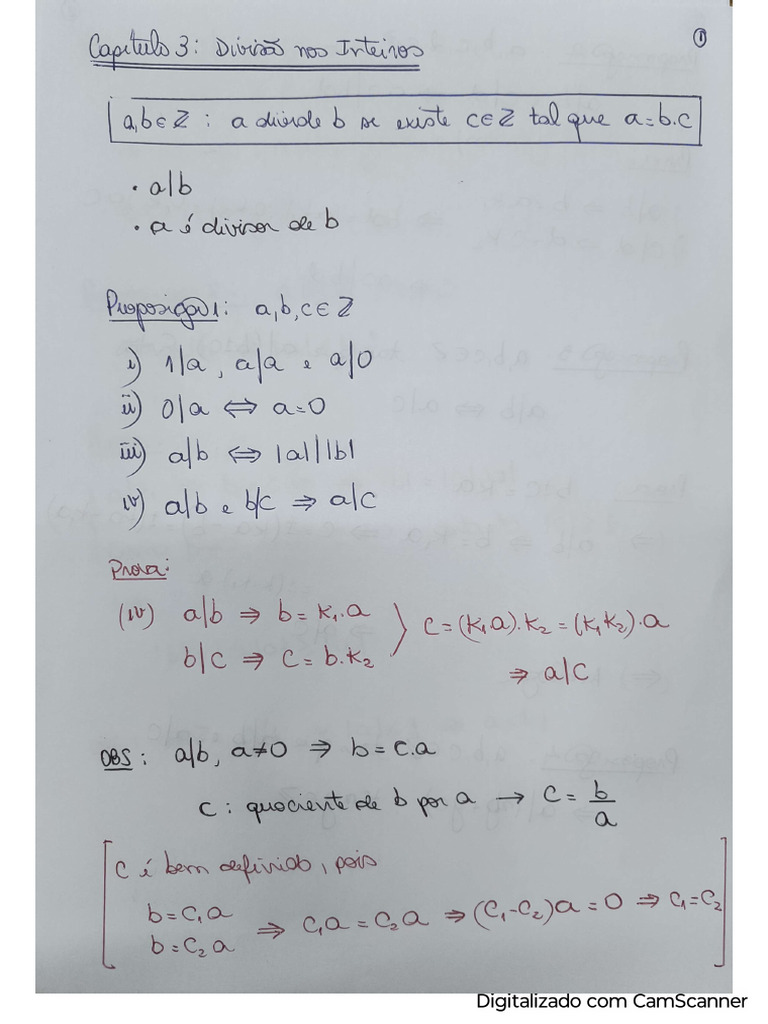 ①
Capítulo 3: Divisão nos Inteiros
a,b∈ℤ : a divide b se existe c∈ℤ tal que a=b.c
• a|b
• a é divisor de b
Proposição 1: a,b,c∈ℤ
i) 1|a, a|a e a|0
ii) 0|a ⇔ a=0
iii) a|b ⇔ |a|||b|
iv) a|b e b|c ⇒ a|c
Prova:
(iv) a|b ⇒ b=K₁.a
b|c ⇒ c=b.K₂ } c=(K₁.a).K₂=(K₁K₂).a
⇒ a|c
OBS: a|b, a≠0 ⇒ b=c.a
c: quociente de b por a → c = b/a
[c é bem definido, pois
b=c₁a
b=c₂a ⇒ c₁a=c₂a ⇒ (c₁-c₂)a=0 ⇒ c₁=c₂]
Digitalizado com CamScanner